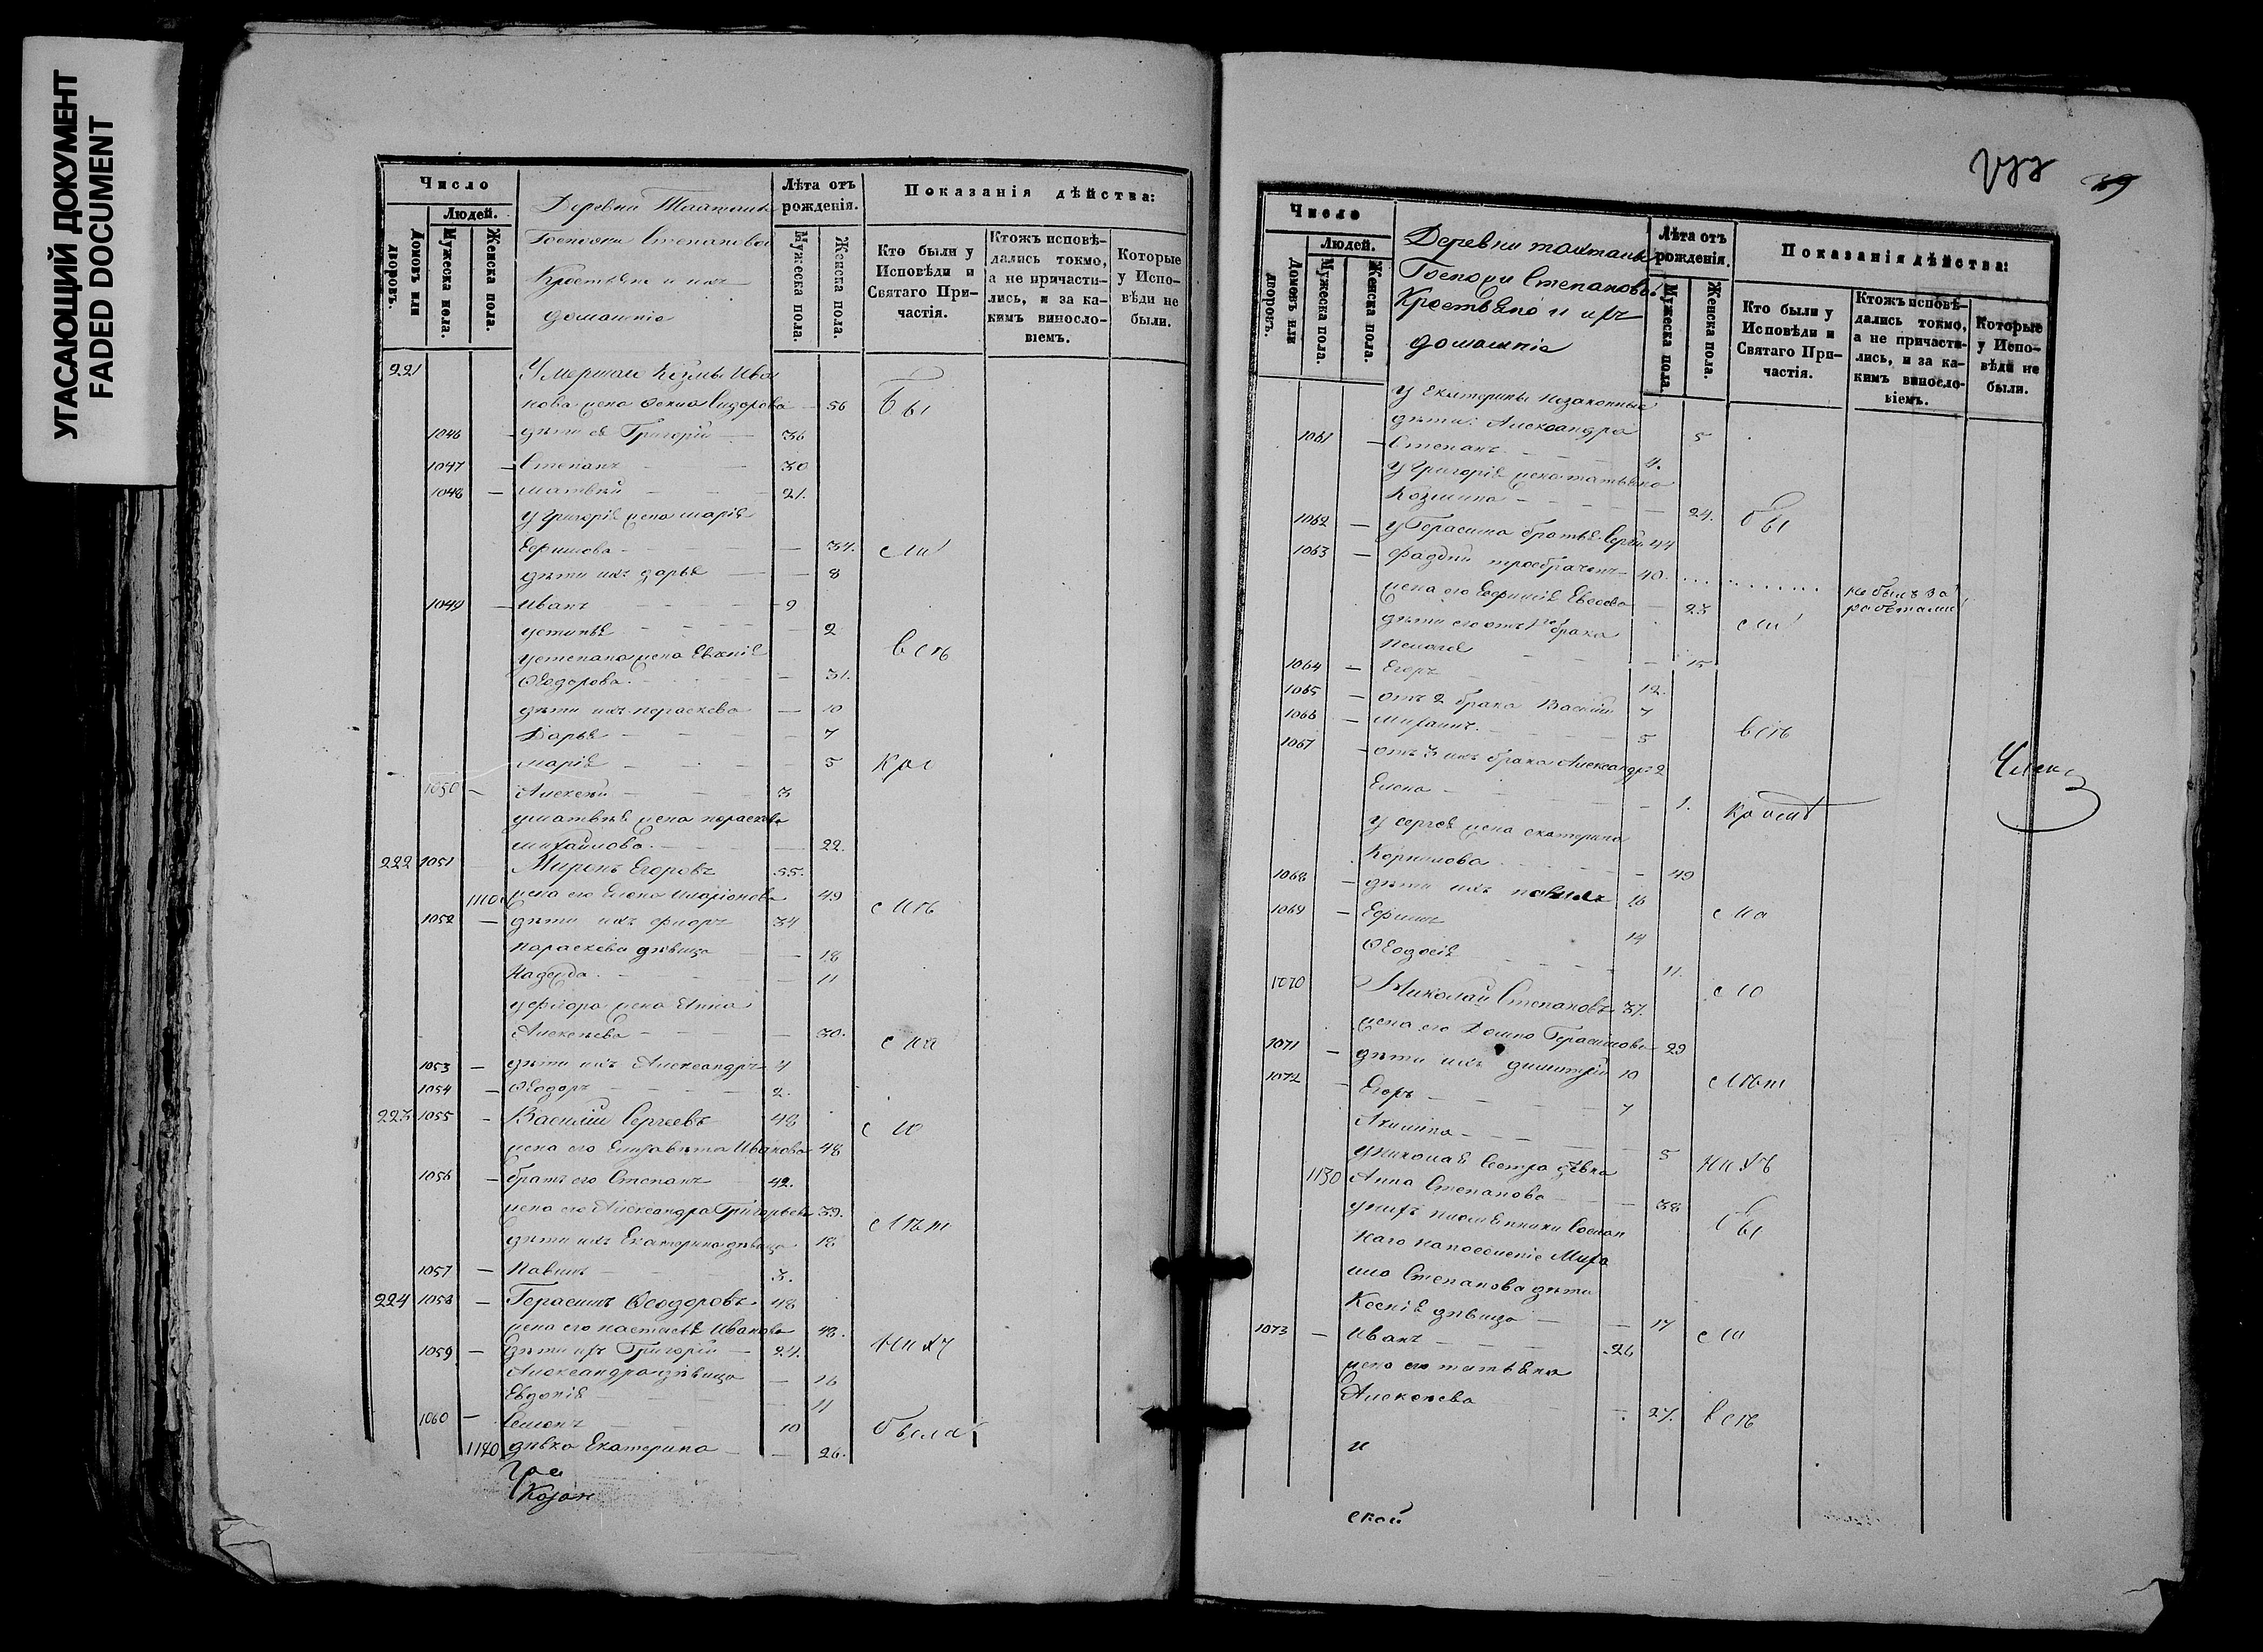 УГАСАЮЩИЙ ДОКУМЕНТ
FADED DOCUMENT
Число
Людей.
Домовъ или дворовъ.
Мужеска пола.
Женска пола.
Деревни
Госпожи Степановой
Крестьяне и ихъ
домашніе
Лѣта отъ рожденія.
Мужеска пола.
Женска пола.
Показанія дѣйства:
Кто были у Исповѣди и Святаго Причастія.
Ктожъ исповѣдались токмо, а не причастились, и за какимъ винословіемъ.
Которые у Исповѣди не были.
221 Умершаго Козмы Ива
нова жена Сидорова 56 Бы
1046 дѣти ея Григорій 36
1047 Степанъ 30
1048 Матвѣй 21.
у Григорія жена Марія
Ефимова 34. сии
дѣти ихъ Дарья 8
1049 Иванъ 9
Устинья 2
у Степана жена Евгенія всѣ
Ѳеодорова 31.
дѣти ихъ Параскева 10
Дарья 7
Марія 5 Кре
1050 Алексѣй 3
у Матвѣя жена Параскева
Михайлова 22.
222 1051 Миронъ Егоровъ 55.
жена его Елена Иларіонова 49
1052 дѣти ихъ Флоръ 34
Параскева дѣвица 18
Надежда 11
у Флора жена Анна
Алексѣева 30.
1053 дѣти ихъ Александръ 4
1054 Ѳеодоръ 2.
223 1055 Василій Сергеевъ 48
жена его Елизавета Иванова 48
1056 братъ его Степанъ 42.
жена его Александра Григорьева 39.
дѣти ихъ Екатерина дѣвица 18
1057 Павелъ 3.
224 1058 Герасимъ Ѳеодоровъ 48
жена его Настасья Иванова 48.
1059 дѣти ихъ Григорій 24.
Александра дѣвица 16
Евдокія 11
1060 Семенъ 10
1120 дѣвка Екатерина 26.
39
Число
Людей.
Домовъ или дворовъ.
Мужеска пола.
Женска пола.
Деревни
Госпожи Степановой
Крестьяне и ихъ
домашніе
Лѣта отъ рожденія.
Мужеска пола.
Женска пола.
Показанія дѣйства:
Кто были у Исповѣди и Святаго Причастія.
Ктожъ исповѣдались токмо, а не причастились, и за какимъ винословіемъ.
Которые у Исповѣди не были.
у Екатерины незаконныя
дѣти: Александра 5
1061 Степанъ
у Григорія жена Татьяна
Козмина 24.
1062 у Герасима братья Сергѣй 44
1063 Фаддей троебраченъ 40.
не былъ за
работами
жена его Евфимія Евсеева 23
дѣти его отъ 1го брака
Пелагея 15
1064 Егоръ 12.
1065 отъ 2 брака Василій 7
1066 Михаилъ 5 всѣ
1067 отъ 3 ихъ брака Александръ 2
Елена 1.
у Сергея жена Екатерина
Корнилова 49
1068 дѣти ихъ Павелъ 16
1069 Ефимъ 14
Ѳеодосія 11.
1070 Николай Степановъ 37.
жена его Домна Герасимова 29
1071 дѣти ихъ Димитрій 10
1072 Егоръ 7
Акилина 5
у Николая сестра дѣвка
1130 Анна Степанова 38
у нихъ племянники
Миха
ила Степанова дѣти
Ксенія дѣвица 17
1073 Иванъ 26
жена его Татьяна
Алексѣева 27. всѣ
и
ской